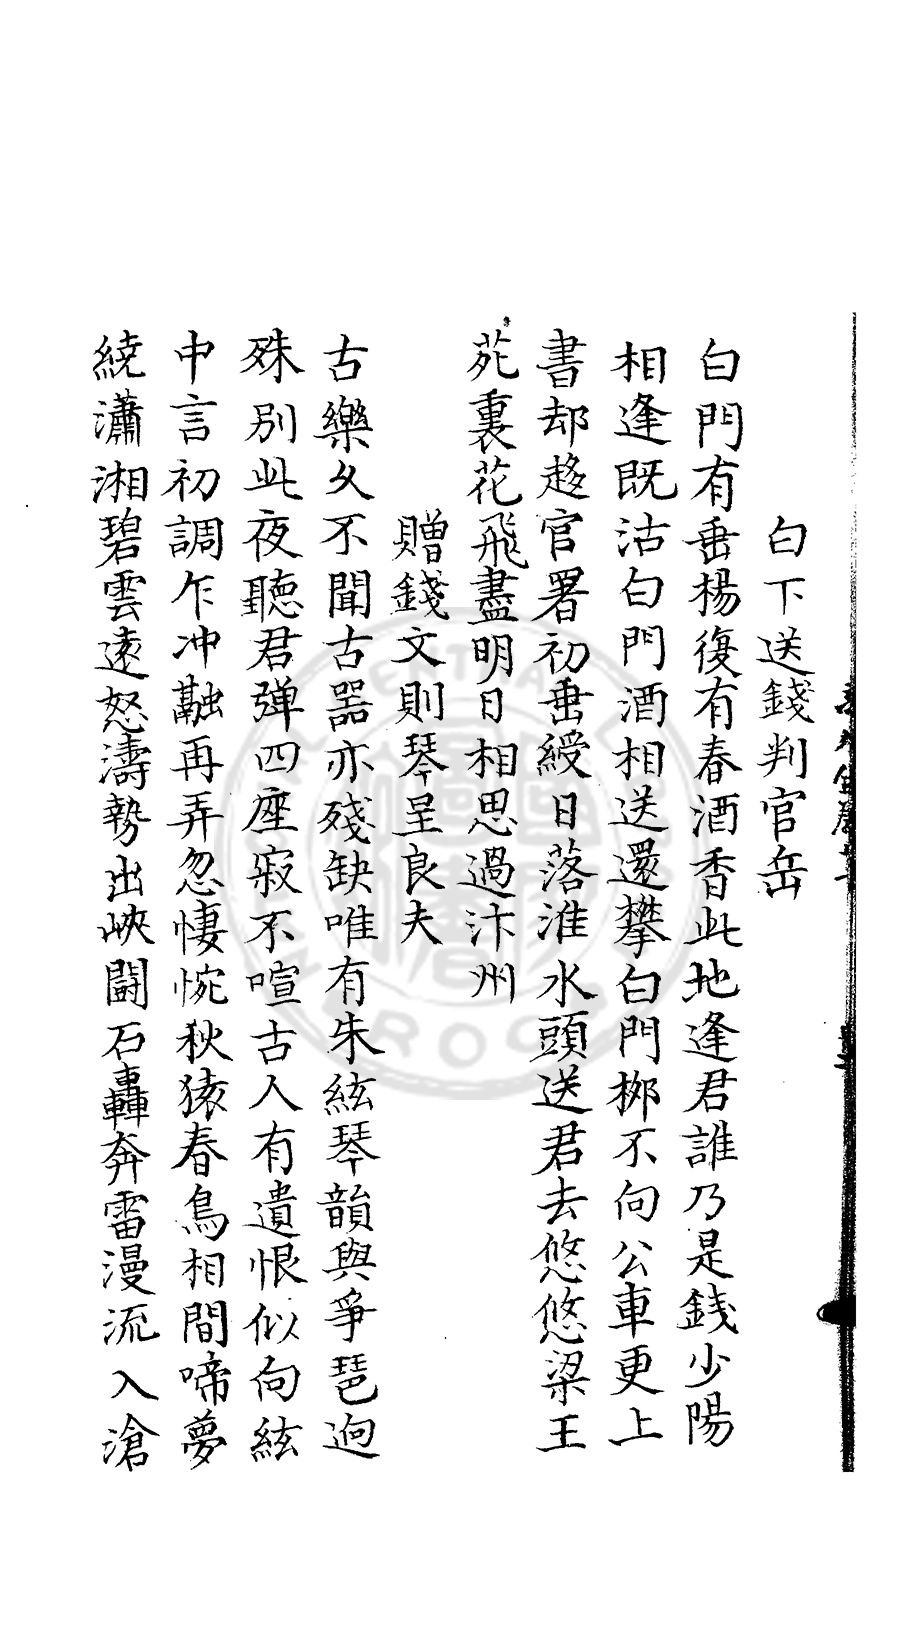 白下送錢判官岳
白門有垂楊復有春酒香此地逢君誰乃是錢少陽
相逢既沽白門酒相送還攀白門栁不向公車更上
書却趍官署初垂綬日落淮水頭送君去悠悠梁王
苑裏花飛盡明日相思過汴州
贈錢文則琴呈良夫
古樂久不聞古器亦殘缺唯有朱絃琴韻與爭琶逈
殊別此夜聽君弹四座寂不喧古人有遺恨似向絃
中言初調乍冲融再弄忽悽惋秋猿春鳥相間啼夢
繞瀟湘碧雲遠怒濤勢出峽鬪石轟奔雷漫流入滄